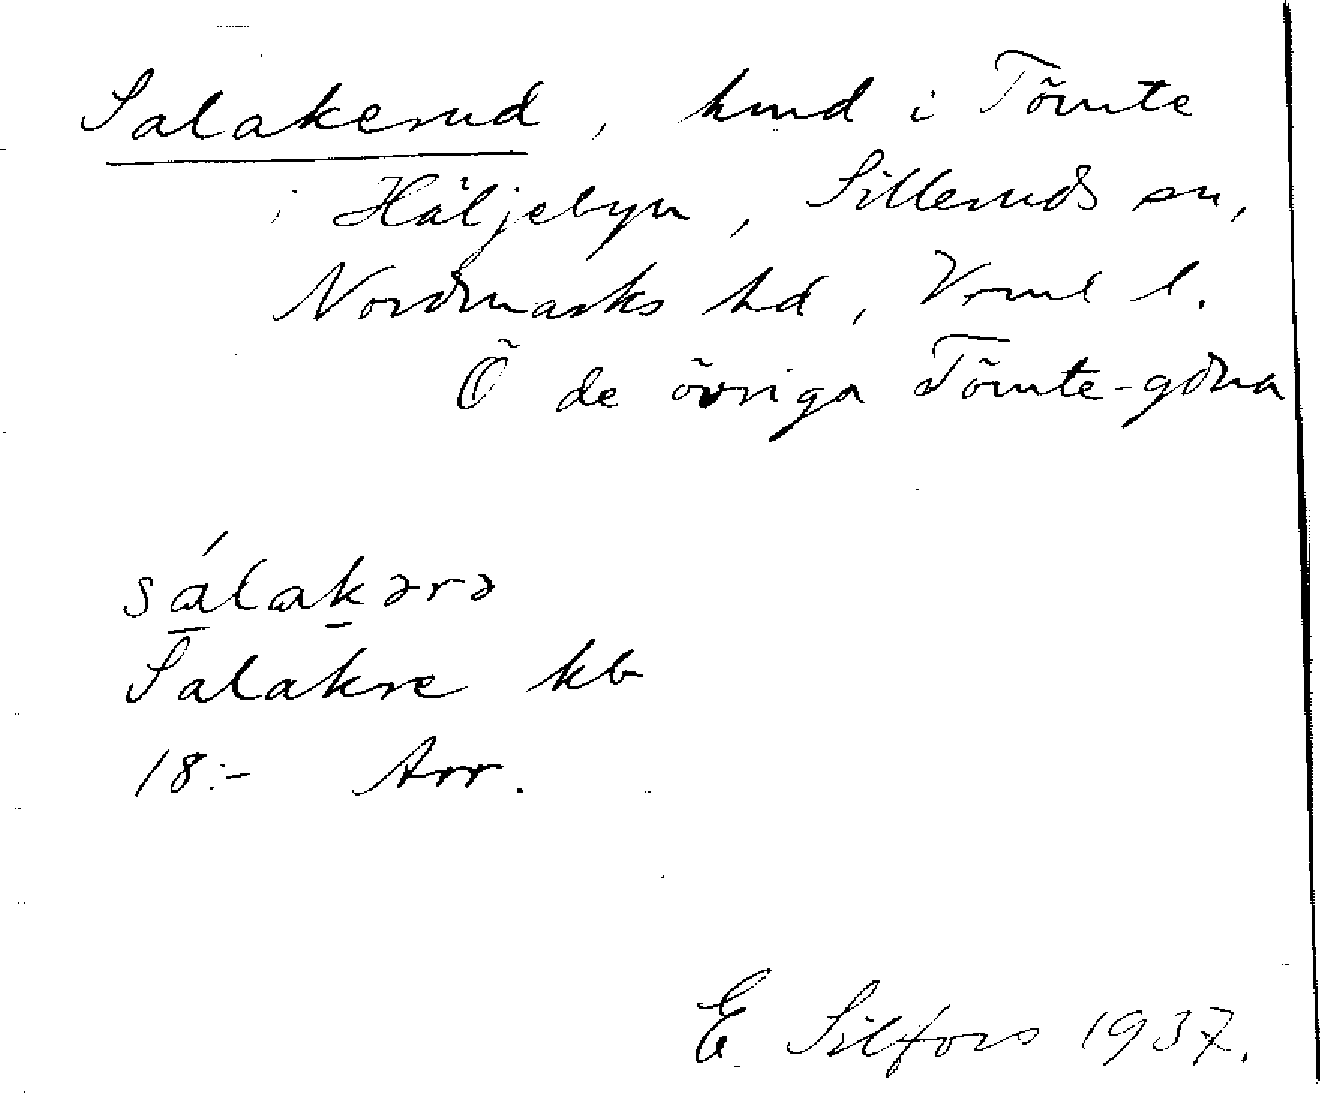 Salakerud, hmd i Tömte
i Häljebyn, Silleruds sn,
Nordmarks hd, Vrml l.
Ö de övriga Tömte-gdna
sálakərə
Salakre kb
18:- Arr.
E Silfors 1937.